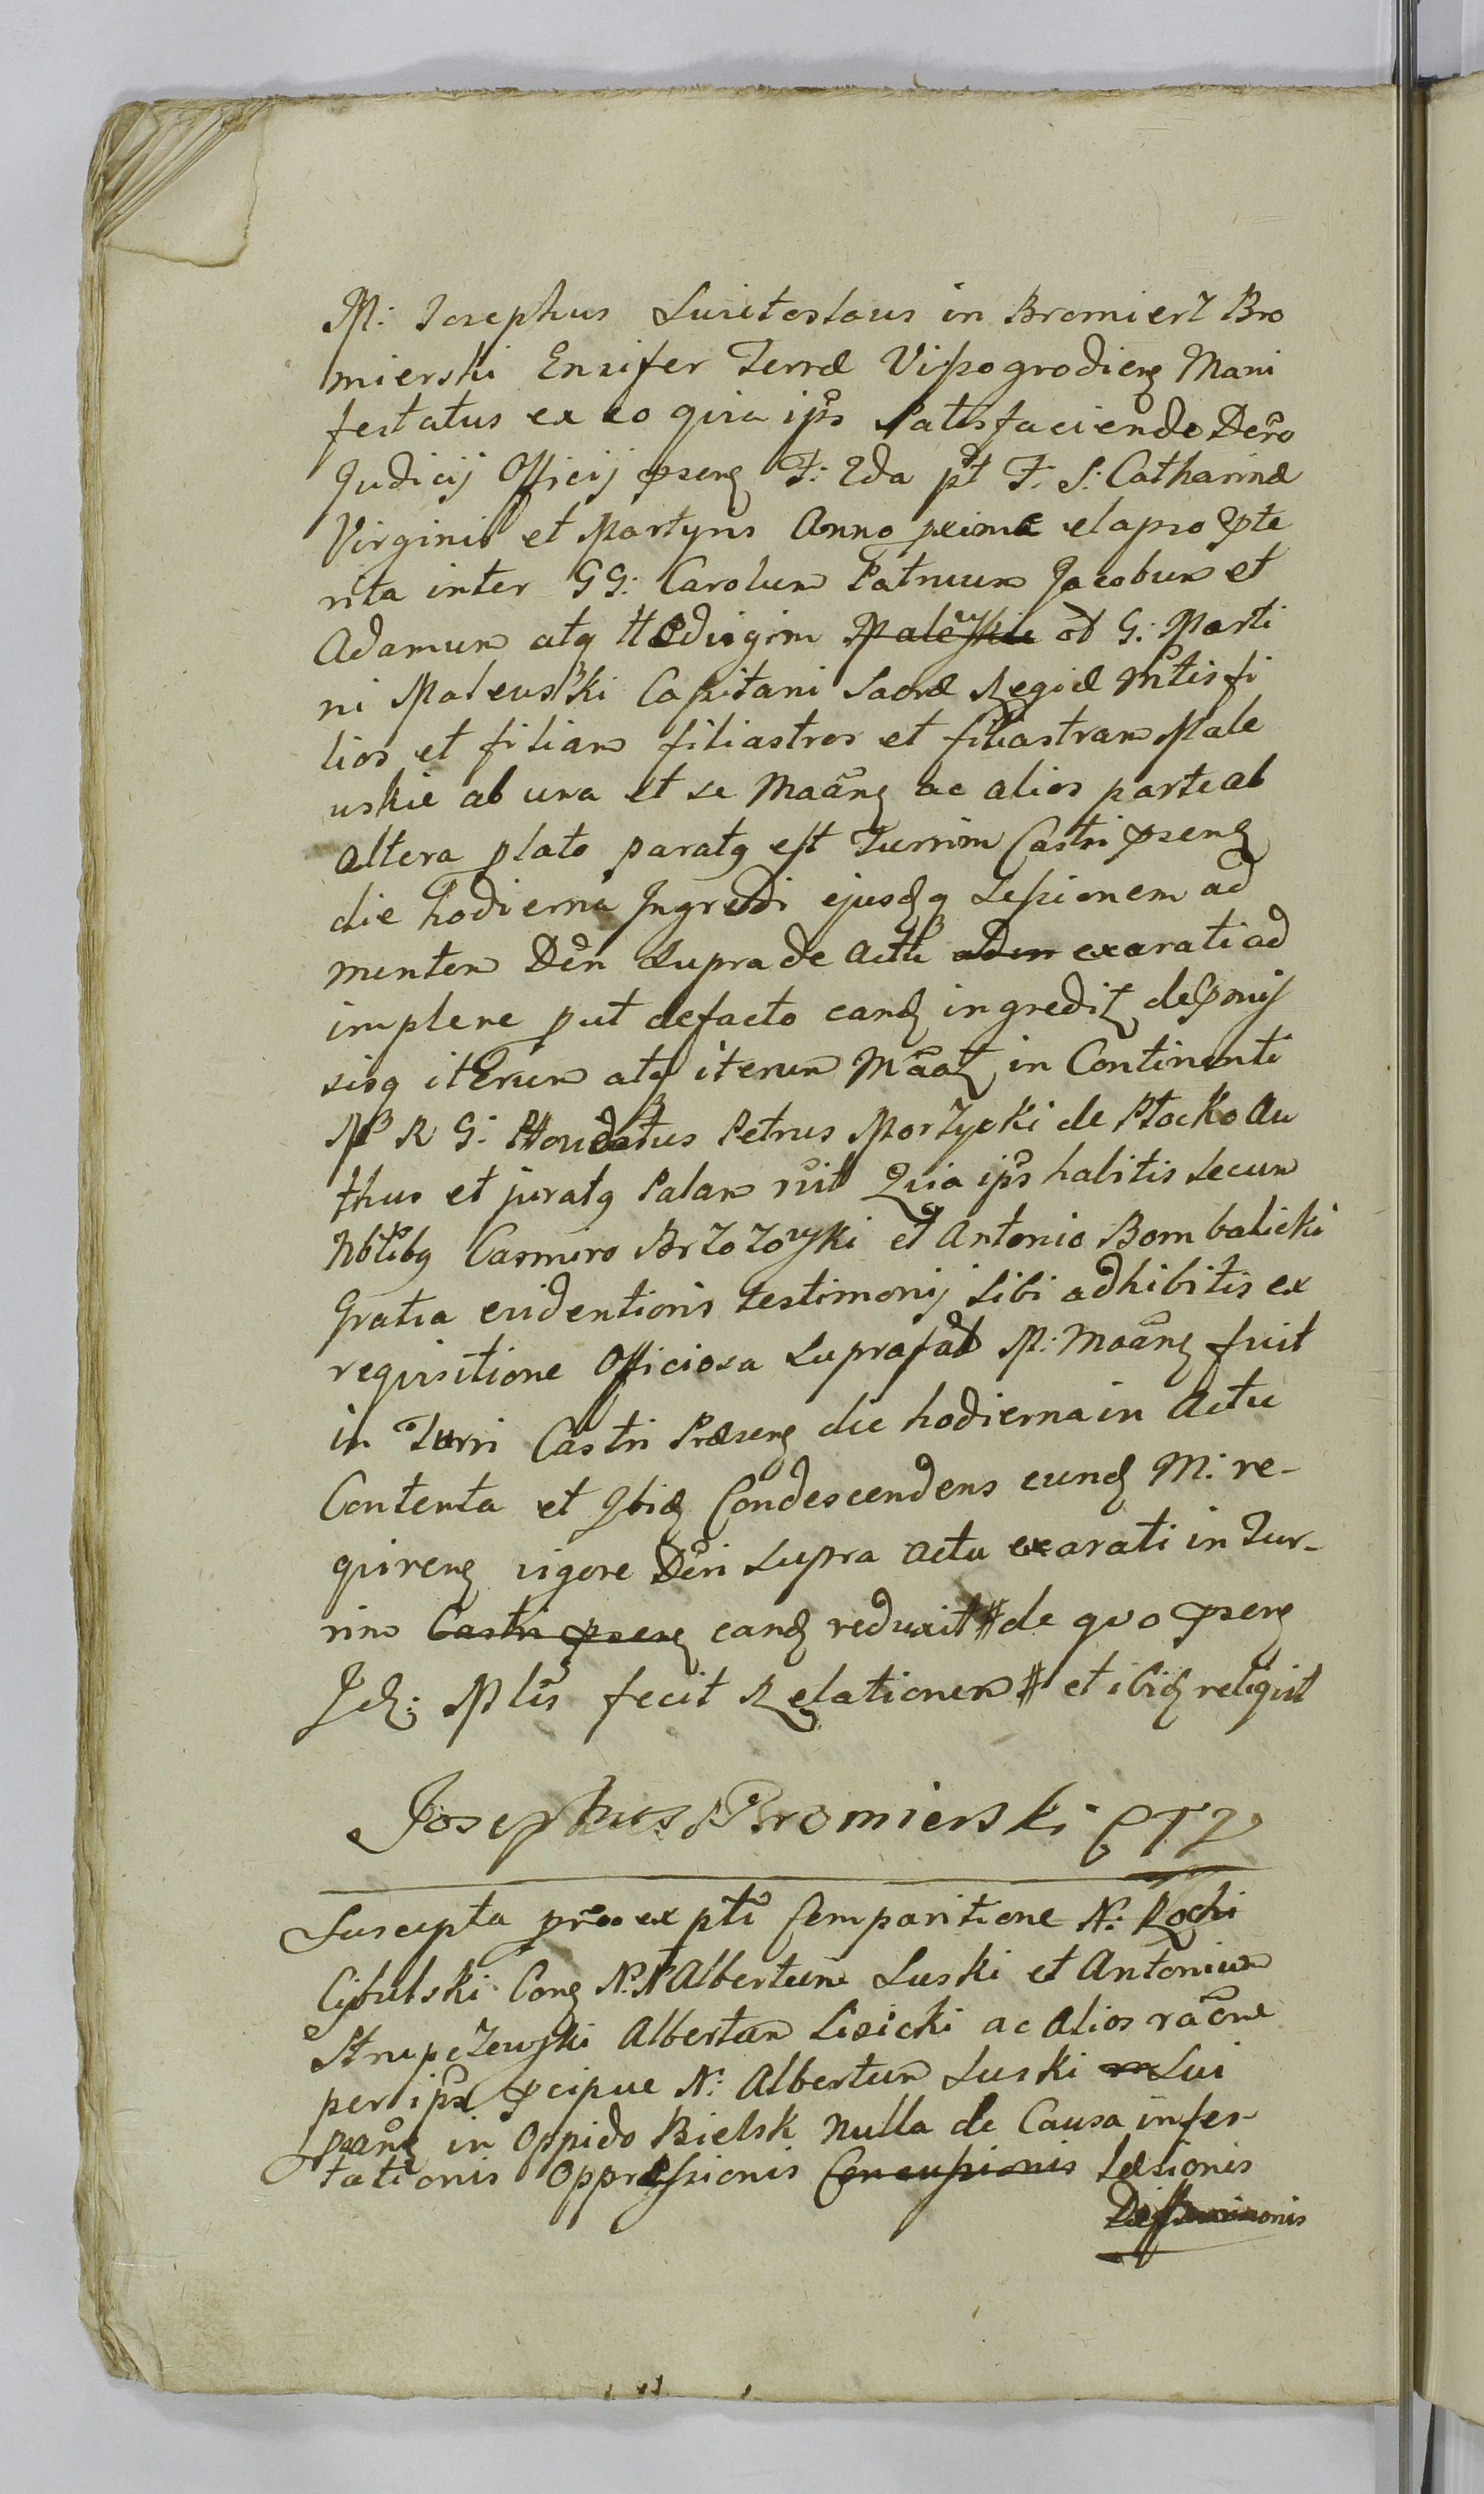 M: Josephus Suietoslaus in Bromierz Bro
mierski Ensifer Terræ Vissogrodien̄ Mani
festatus ex eo quia ips̄ Satisfaciendo Decr̄o
Judicij Officij p̄sen̄ F: 2da pt̄ F: S: Catharinæ
Virginis et Martyris Anno prime elapso
rita inter GG: Carolum Patruum Jacobum et
Adamum atq Hædvigim Maleuskie ol G: Marti
ni Maleuski Capitani Sacræ Regiæ Mt̄is fi
lios et filiam filiastros et filiastram Male
uskie ab una et se Maān̄ ac alios parte ab
altera plato paratq est Turrim Castri p̄sen̄
die hodierna Ingredi ejusdq Sessionem ad
mentem Decr̄i supra de Actu exarati ad
implere put defacto eand ingredit̄
sisq iterum atq iterum Māat̄ in Continenti
M R G: Providus Petrus Morzycki de Płocko Au
thus et juratq Palam rt̄it Quia ips̄ habitis secum
Nbt̄ibq Casmiro Brzozoẅski et Antonio Bombalicki
Gratia evidentioris testimonij sibi adhibitis ex
requisitione Officiosa Suprafat̄ M: Maān̄ fuit
in Turri Castri Præsen̄ die hodierna in Actu
Contenta et Ibid Condescendens eund M: re-
quiren̄ vigore Decr̄i supra actu exarati in Tur-
rim Castri p̄sen̄ eand reduxit # de quo p̄sen̄
Id: Mlis fecit Relationem # et ibid reliquit
Josephus Bromierski
Suscepta prō ex pt̄i Comparitione N: Rochi
Cybulski Con̄ N.N Albertum Luski et Antonium
Strupczewski Albertum Lisicki ac Alios rāone
per ips̄ p̄cipue N: Albertum Luski Sui
in Oppido Bielsk Nulla de Causa infes-
tationis Oppressionis Concussionis Læsionis